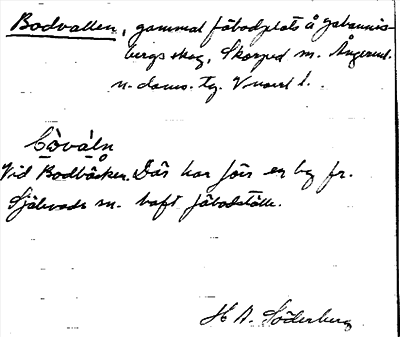 Bodvallen, gammal fäbodplats å Johannis-
bergs skog, Skorped sn. Ångerml.
n. doms. tg. V
Vid Bodbäcken. Där har förr en by fr.
Själevads sn. haft fäbodställe.
H A. Söderberg